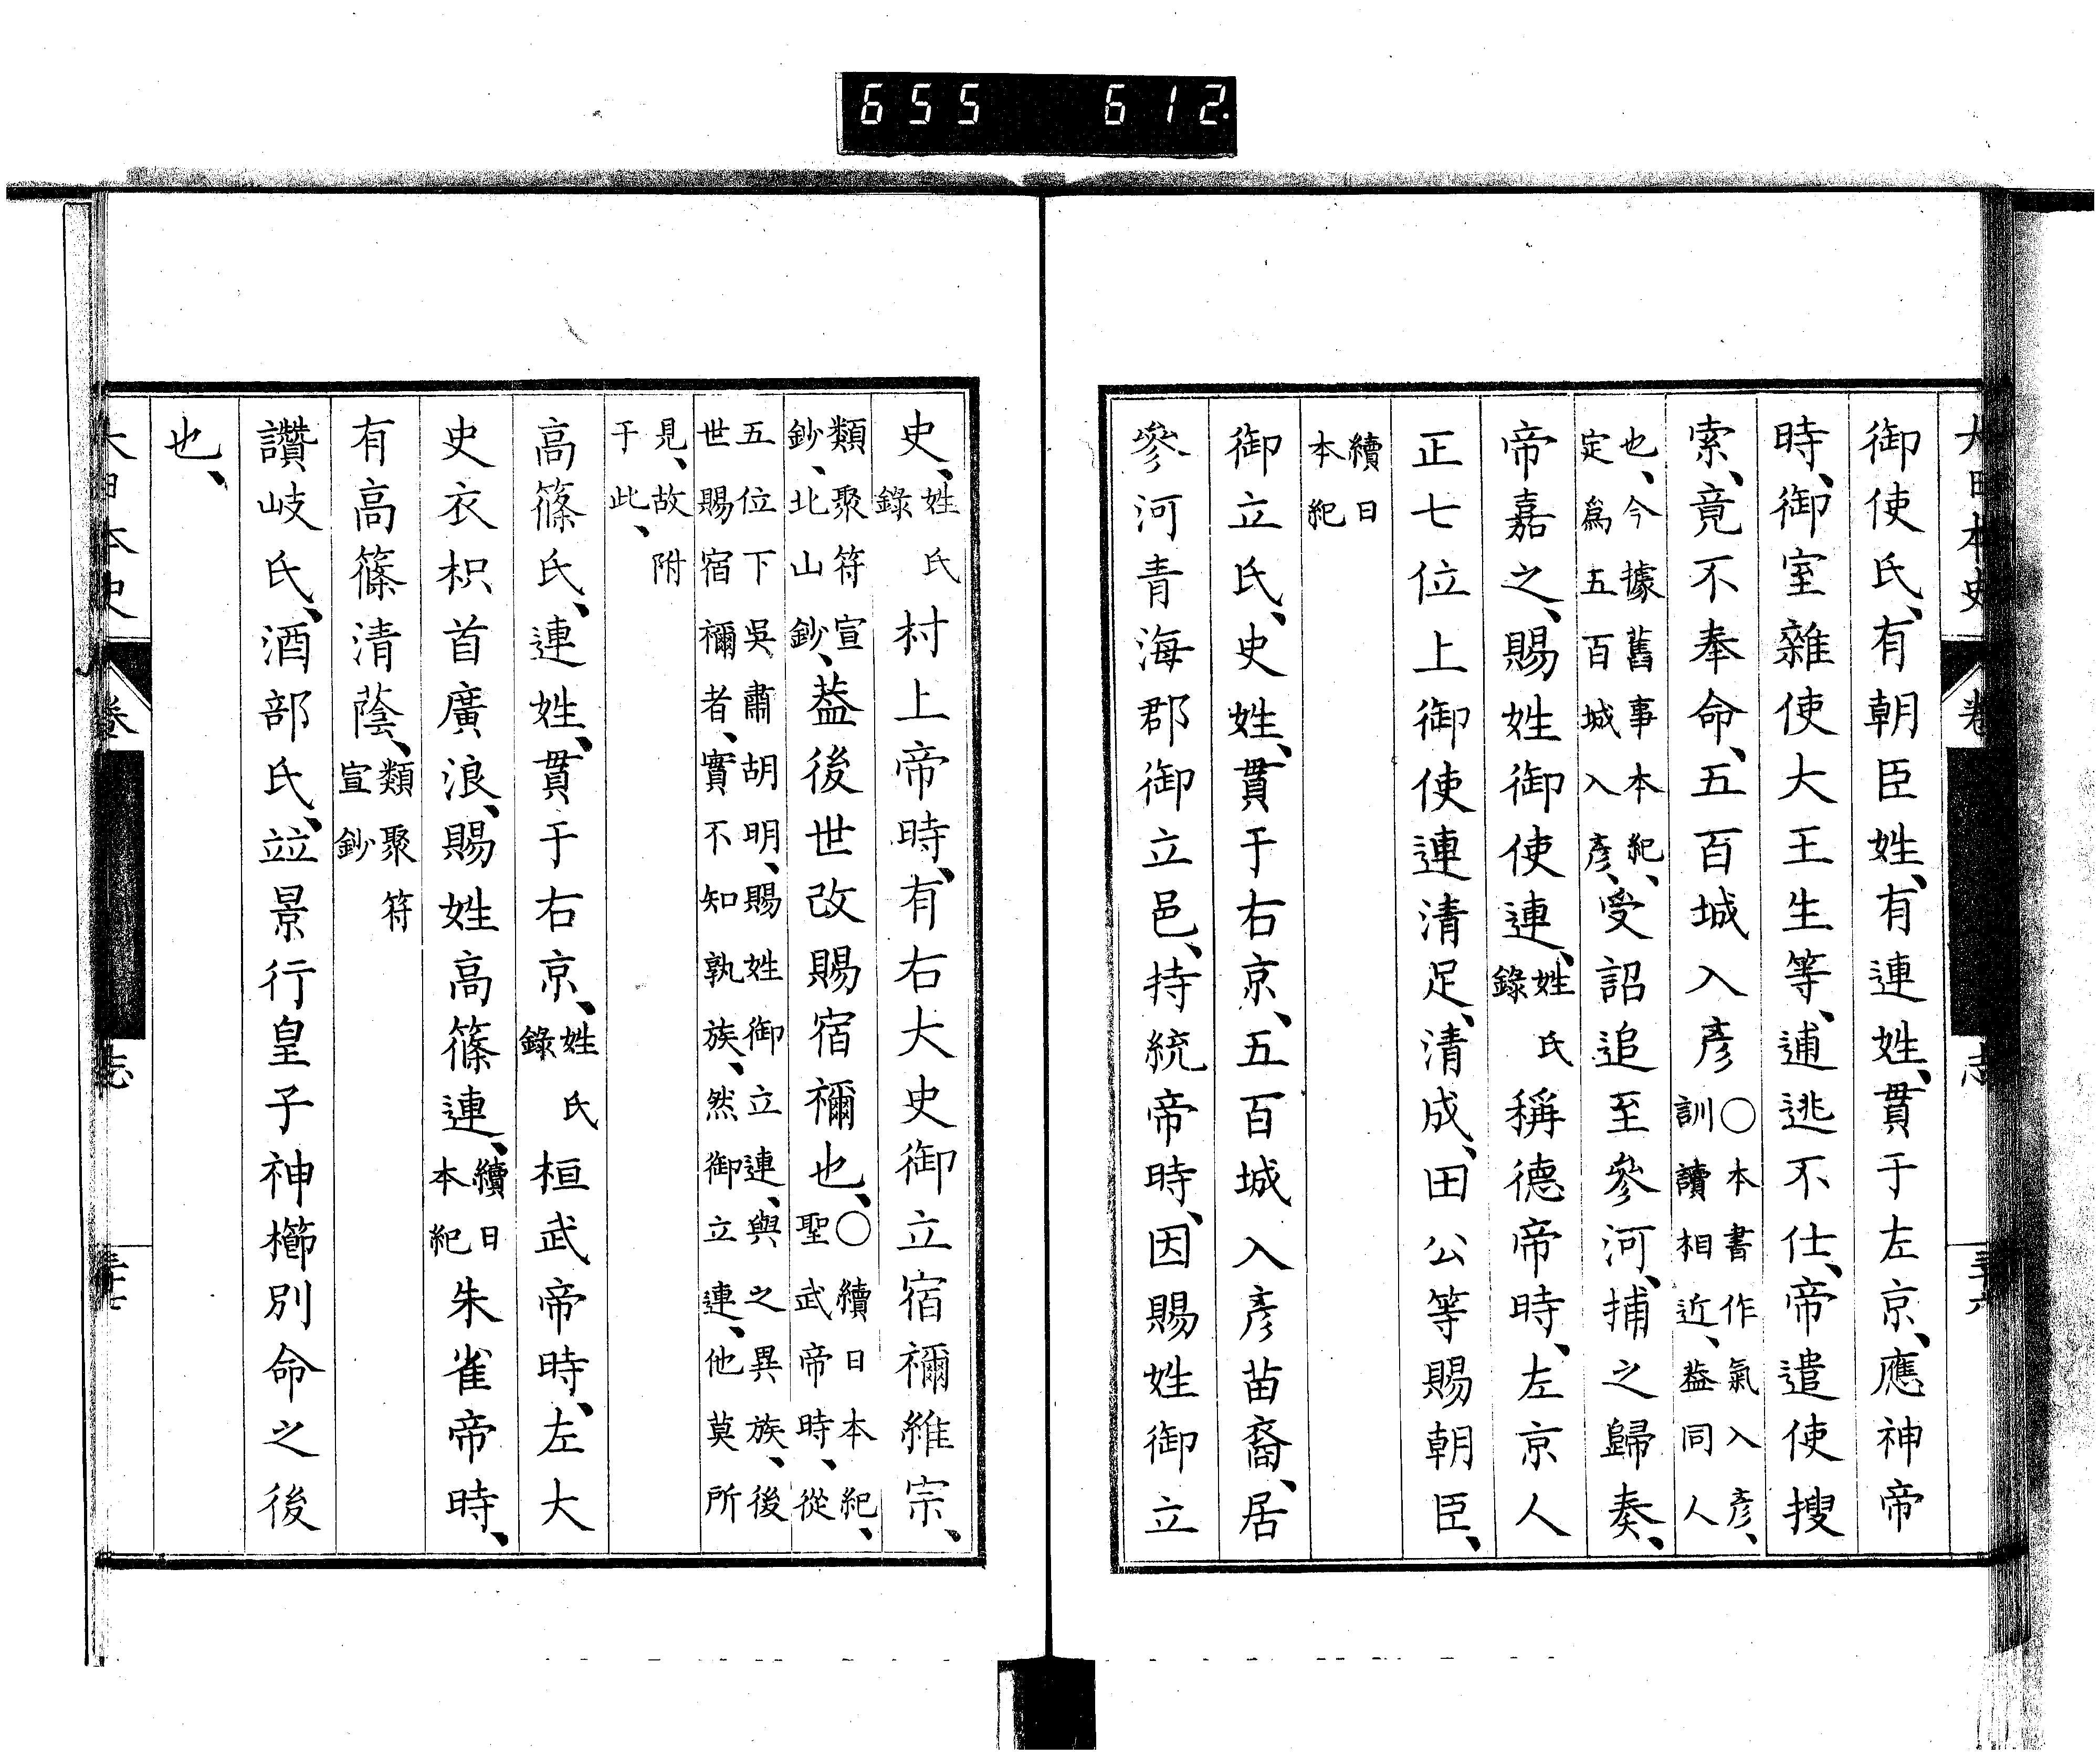 655 612
大日本史 卷 志 三十六
御使氏、有朝臣姓、有連姓、貫于左京、應神帝
時、御室雜使大壬生等、逋逃不仕、帝遣使搜
索、竟不奉命、五百城入彥○本書作氣入彥、訓讀相近、葢同人
也、今據舊事本紀、定爲五百城入彥、受詔追至參河、捕之歸奏、
帝嘉之、賜姓御使連、姓氏錄稱德帝時、左京人
正七位上御使連清足、清成、田公等賜朝臣、
續日本紀
御立氏、史姓、貫于右京、五百城入彥苗裔、居
參河青海郡御立邑、持統帝時、因賜姓御立
史、姓氏錄村上帝時、有右大史御立宿禰維宗、
類聚符宣鈔、北山鈔、葢後世改賜宿禰也、○續日本紀、聖武帝時、從
五位下吳肅胡明、賜姓御立連、與之異族、後世賜宿禰者、實不知孰族、然御立連、他莫所
見、故附于此、
高篠氏、連姓、貫于右京、姓氏錄桓武帝時、左大
史衣枳首廣浪、賜姓高篠連、續日本紀朱雀帝時、
有高篠清蔭、類聚符宣鈔
讚岐氏、酒部氏、竝景行皇子神櫛別命之後
也、
大日本史 卷 志 三十七